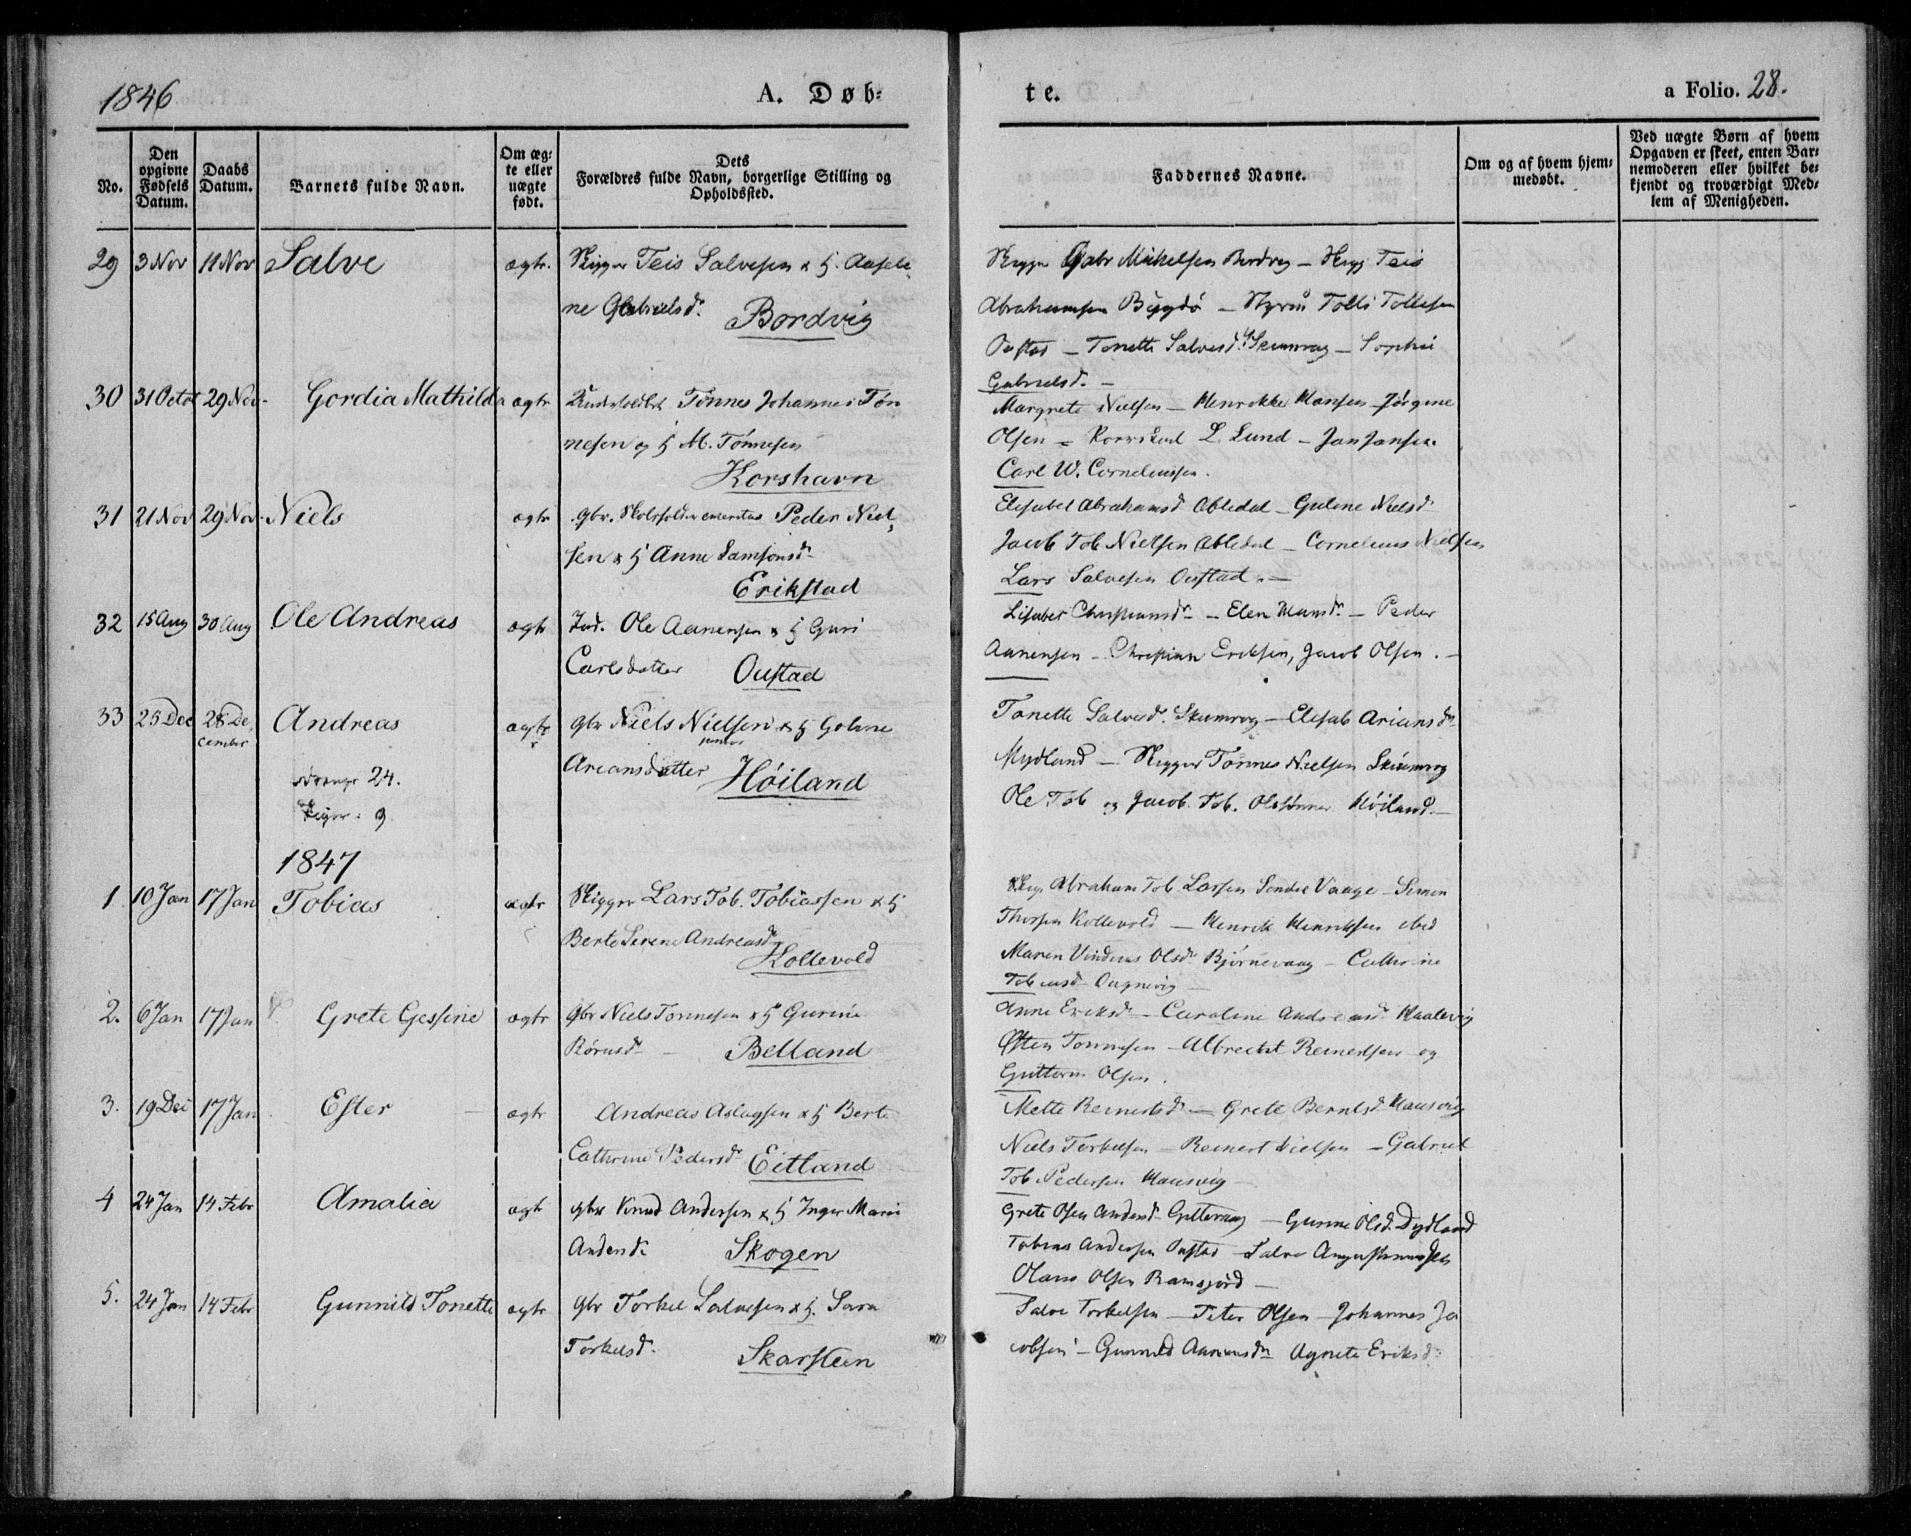 1846
A. Døb-
te.
a Folio. 28.
No.
Den opgivne Fødsels Datum.
Daabs Datum.
Barnets fulde Navn.
Om ægte eller uægte født.
Dets Forældres fulde Navn, borgerlige Stilling og Opholdssted.
Faddernes Navne.
Om og af hvem hjemmedøbt.
Ved uægte Børn af hvem Opgaven er skeet, enten Barnemoderen eller hvilket bekjendt og troværdigt Medlem af Menigheden.
29 3 Nov 11 Nov Salve ægte. Skipper Teis Salvesen & H. Aasele-
ne Gabrielsd. Bordvig
Gabr Mikelsen Bordvig — Teis
Abrahamsen Bygdø — Tolli Tollesen
Oustad — Tonette Salvesd. Skumrag — Sophie
Gabrielsd. —
30 31 Octob 29 Nov. Gordia Mathilda ægte Tønnes Johannes Tøn
nesen og H M. Tønnesen
Korshavn
Margrete Nielsen — Henrikke Hansen — Jørgine
Olsen — L. Lund — Jan Jansen.
Carl W. Corneliussen.
31 21 Nov 29 Nov. Niels ægte gbr. Skoleholder emeritus Peder Niel-
sen & H Anne Samsonsd.
Erikstad
Elisabet Abrahamsd Abledal — Guline Nielsd.
Jacob Tob Nielsen Abledal — Cornelius Nielsen
Lars Salvesen Oustad. —
32 15 Aug 30 Aug Ole Andreas ægte Ind. Ole Aanensen & H Guri
Carlsdatter Oustad
Lisabet Christiansdr. — Elen Hansdr. — Peder
Aanensen — Christian Eriksen, Jacob Olsen. —
33 25 Dec 28 De- Andreas ægte gbr Niels Nielsen & H Goline
cember
Ariansdatter Høiland
Drenge 24.
Piger: 9
Tonette Salvesd. Skumrag — Elisab Ariansdr
Mydland — Skipper Tønnes Nielsen Skumrag
Ole Tob og Jacob Tob. Olssønner Høiland. —
1847
1 10 Jan 17 Jan Tobias ægte Skipper Lars Tob. Tobiassen & H
Berte Serene Andreasdr
Kollevold
Abraham Tob Larsen Søndre Vaage — Simon
Thorsen Kollevold — Henrik Henriksen ibid
Maren Olsdr Bjørnevaag — Cathrine
Tobiasd
2. 6 Jan 17 Jan Grete Gessine ægte gbr Niels Tønnesen & H Gurine
Børusd — Belland
Anne Eriksdr — Caroline Andreasd
Østen Tønnesen — Albrecht Reinertsen og
Guttorm Olsen.
3. 19 Dec 17 Jan Ester ægte Andreas Aslagsen & H Berte
Cathrine Pedersdr Eitland
Mette Reinertsdr — Grete Berntsd Hausvig
Niels Torkelsen — Reinert Nielsen — Gabriel
Tob. Pedersen Hausvig —
4 24 Jan 14 Febr Amalia ægte gbr Knud Andersen & H Inger Marie
Andersdr Skogen
Grete Andersd — Gurine Olsd. Dydland
Tobias Andersen Oustad — Salve
Olaus Olsen Ramsjord —
5. 24 Jan 14 Febr Gunnild Tonette ægte gbr Torkel Salvesen & H. Sara
Torkelsd. Skarsteen
Salve Torkelsen — Peter Olsen — Johannes Ja-
cobsen — Gunnild Aanensdr Agnete Eriksdr